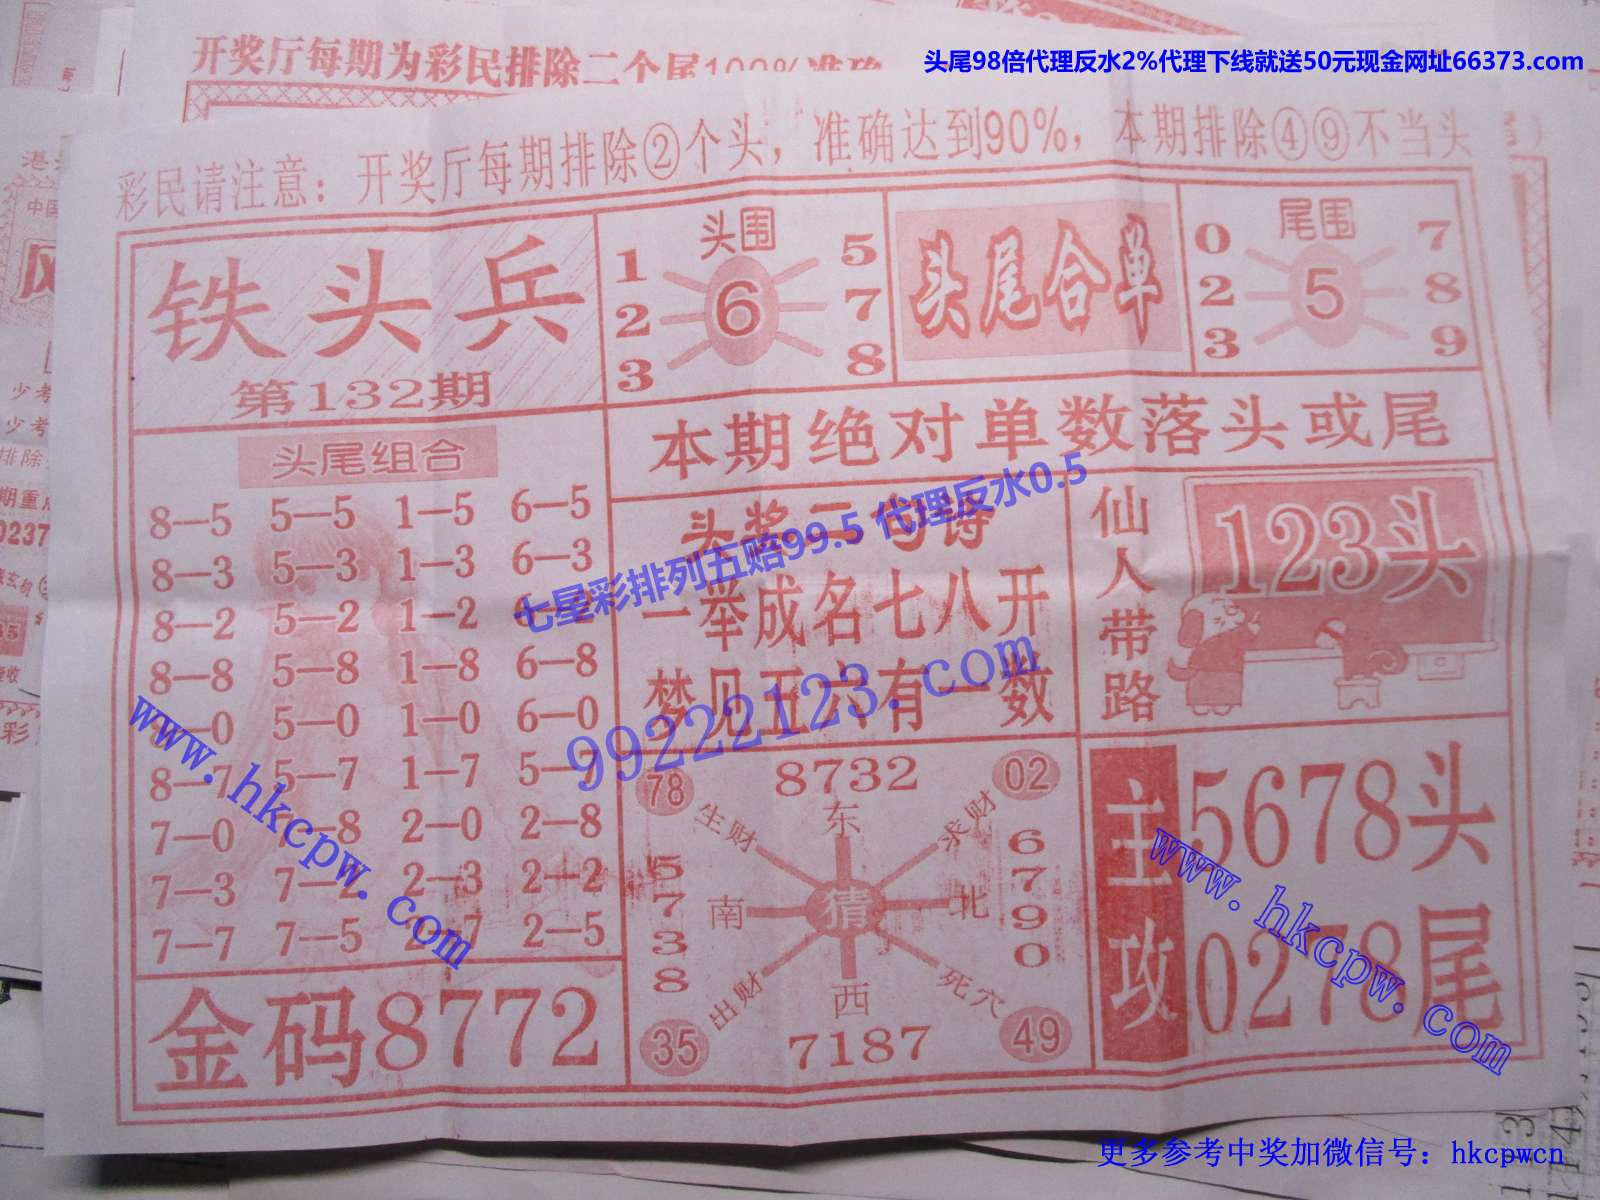 开奖厅每期为彩民排除二个尾100%准确
头尾98倍代理反水2%代理下线就送50元现金网址66373.com
彩民请注意：开奖厅每期排除②个头，准确达到90%，本期排除④⑨不当头
铁头兵
第132期
头围
1 5
2 6 7
3 8
头尾合单
尾围
0 7
2 5 8
3 9
本期绝对单数落头或尾
头尾组合
8—5 5—5 1—5 6—5
8—3 5—3 1—3 6—3
8—2 5—2 1—2
8—8 5—8 1—8 6—8
5—0 1—0 6—0
8—7 5—7 1—7 5—7
7—0 8 2—0 2—8
7—3 7—2 2—3 2—2
7—7 7—5 2—7 2—5
金码8772
七星彩排列五赔99.5 代理反水0.5
一举成名七八开
梦见五六有一数
99222123.com
仙人带路
123头
78 8732 02
生财 东 求财
5738 南 猜 北 6790
出财 西 死穴
35 7187 49
主攻
5678头
0278尾
www.hkcpw.com
www.hkcpw.com
更多参考中奖加微信号：hkcpwcn